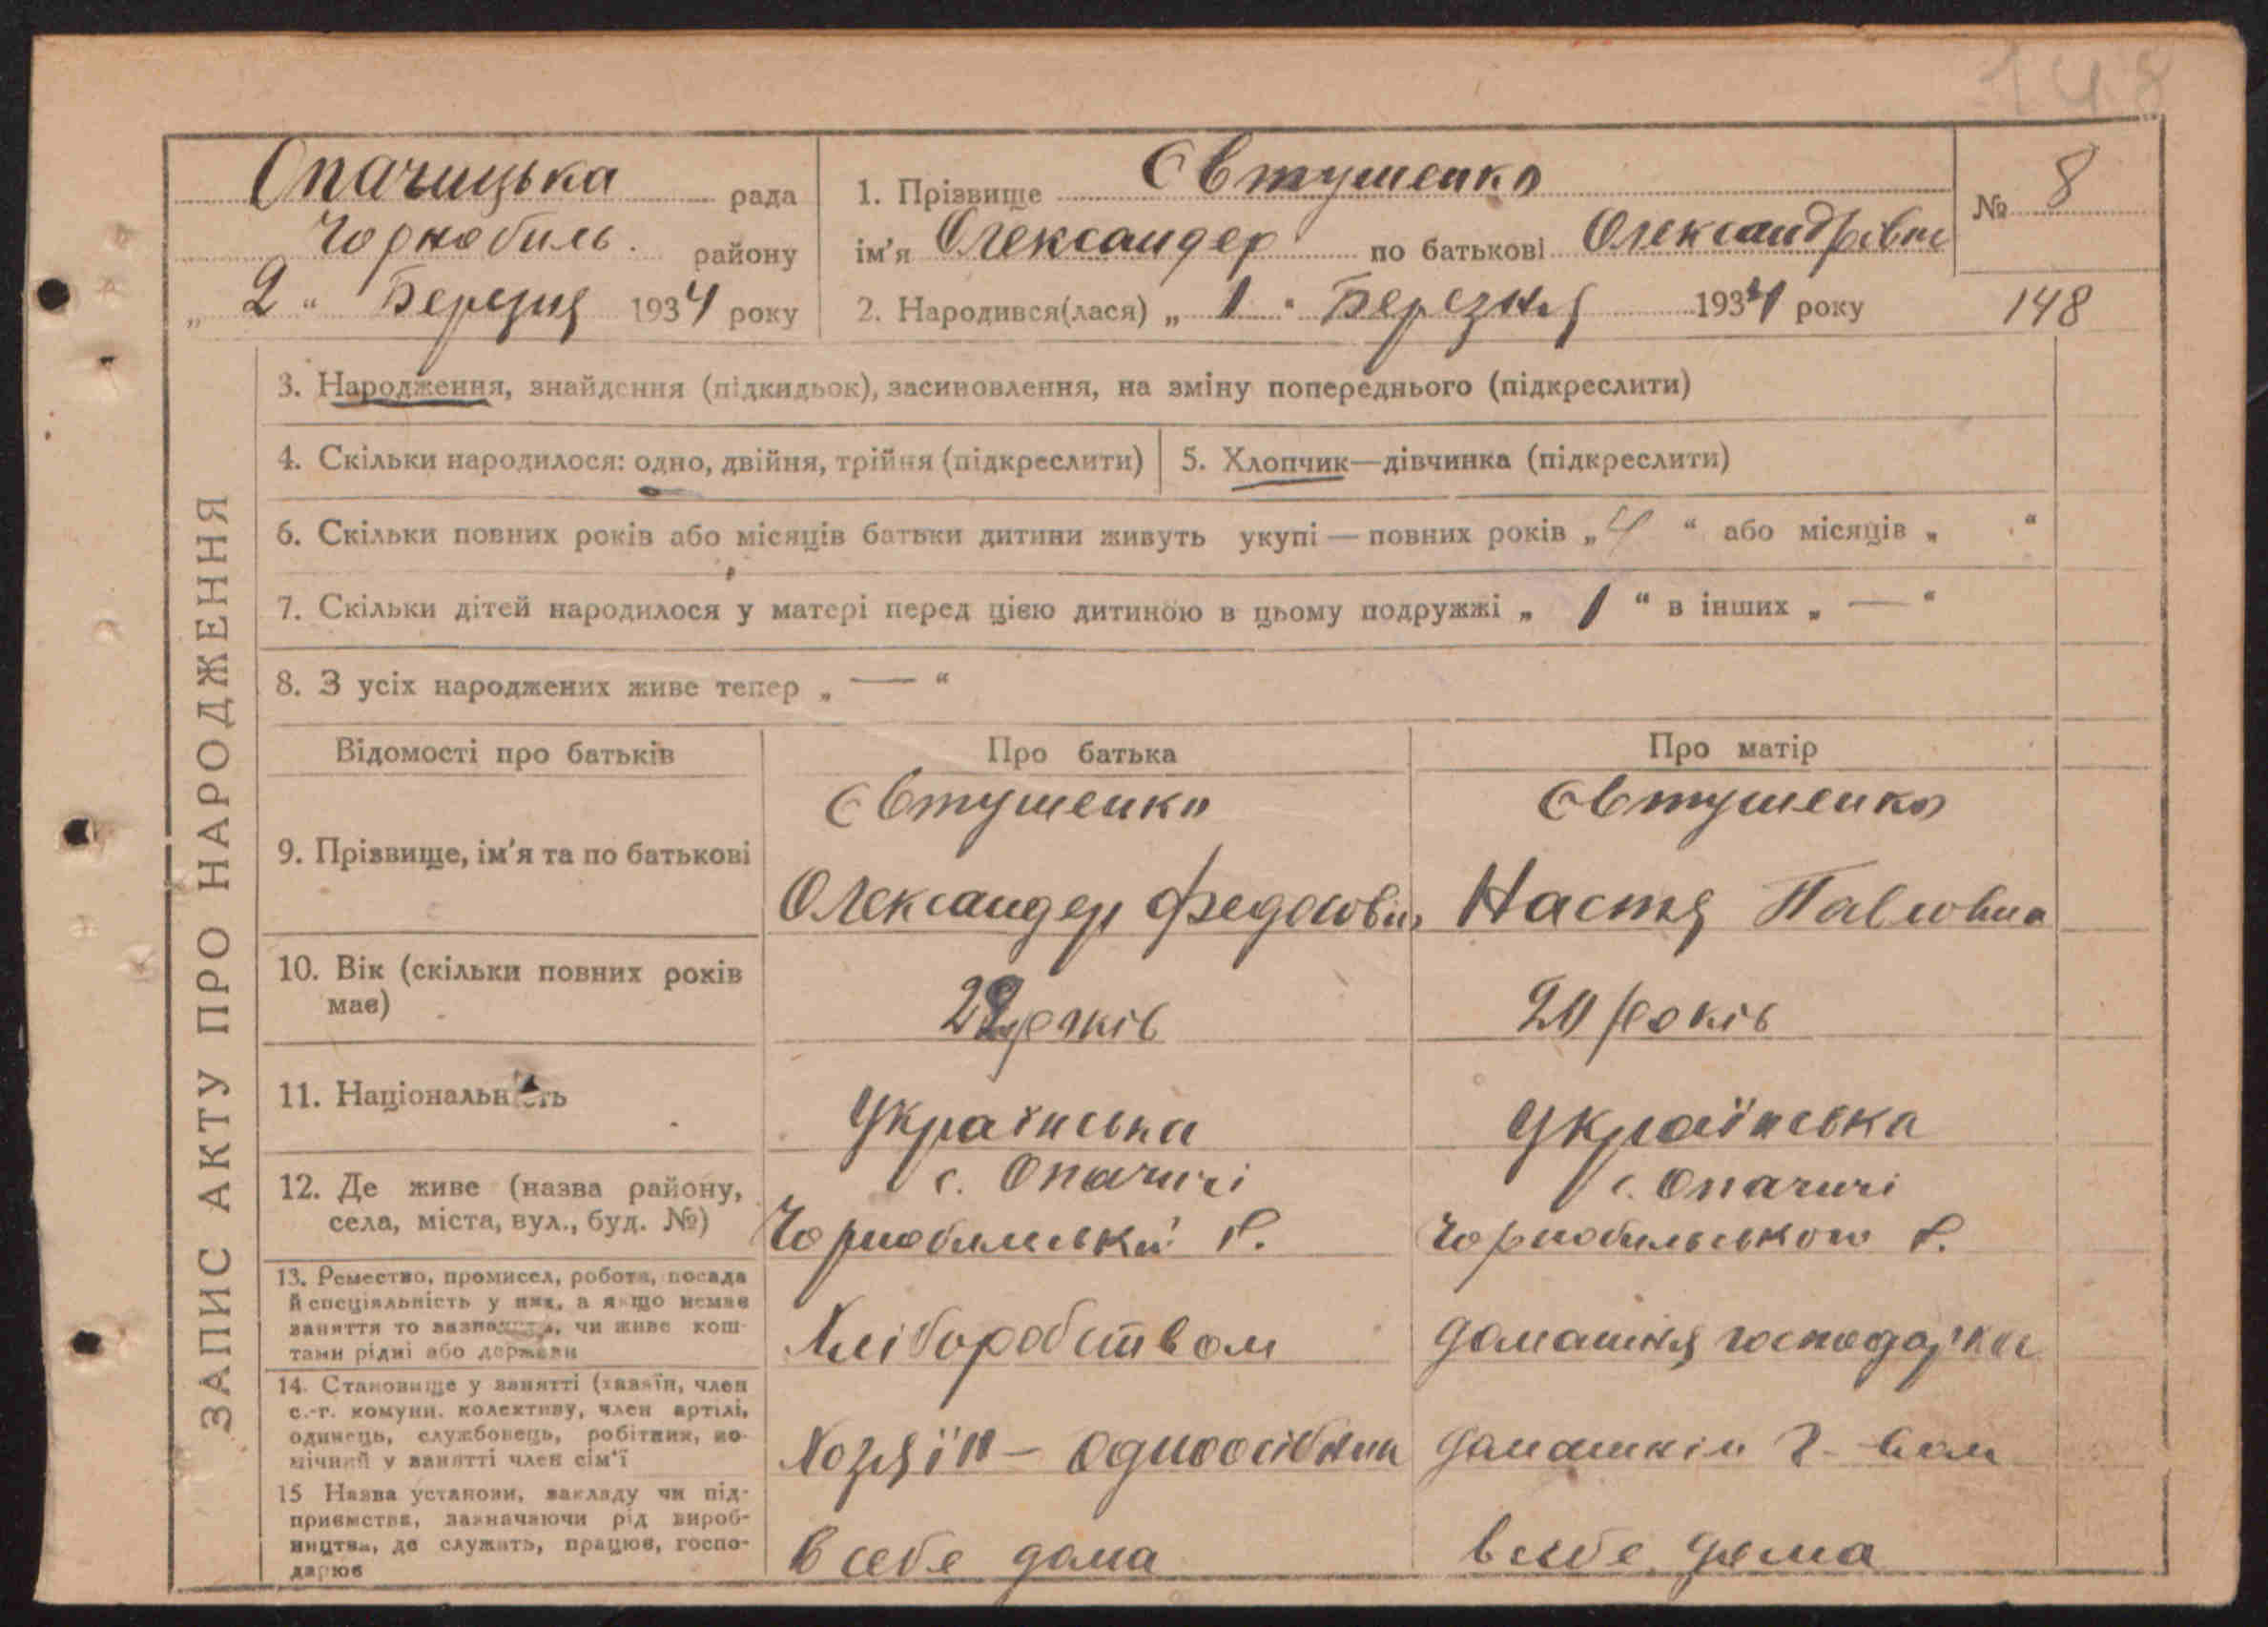 148
Опачицька рада
Чорнобиль. району
„ 2 “ Березня 1934 року
1. Прізвище Євтушенко
ім'я Олександер по батькові Олександрович
2. Народився(лася) „ 1 “ Березня 1934 року
№ 8
148
ЗАПИС АКТУ ПРО НАРОДЖЕННЯ
3. Народження, знайдення (підкидьок), засиновлення, на зміну попереднього (підкреслити)
4. Скільки народилося: одно, двійня, трійня (підкреслити)
5. Хлопчик—дівчинка (підкреслити)
6. Скільки повних років або місяців батьки дитини живуть укупі — повних років „ 4 “ або місяців „ “
7. Скільки дітей народилося у матері перед цією дитиною в цьому подружжі „ 1 “ в інших „ — “
8. З усіх народжених живе тепер „ — “
Відомості про батьків
Про батька
Про матір
9. Прізвище, ім'я та по батькові
Євтушенко
Олександер Федосович
Євтушенко
Настя Павловна
10. Вік (скільки повних років
має)
22 років
20 років
11. Національність
Українська
Українська
12. Де живе (назва району,
села, міста, вул., буд. №)
с. Опачичі
Чорнобильській Р.
с. Опачичі
Чорнобильського Р.
13. Ремество, промисел, робота, посада
й спеціяльність у них, а якщо немає
заняття то зазначити, чи живе кош-
тами рідні або держави
Хліборобством
Домашня господарка
14. Становище у занятті (хазяїн, член
с.-г. комуни. колективу, член артілі,
одинець, службовець, робітник, по-
мічний у занятті член сім'ї
Хозяїн — одноосібник
Домашнім г-вом
15 Назва установи, закладу чи під-
приємства, зазначаючи рід вироб-
ництва, де служить, працює, госпо-
дарює
в себе дома
в себе дома